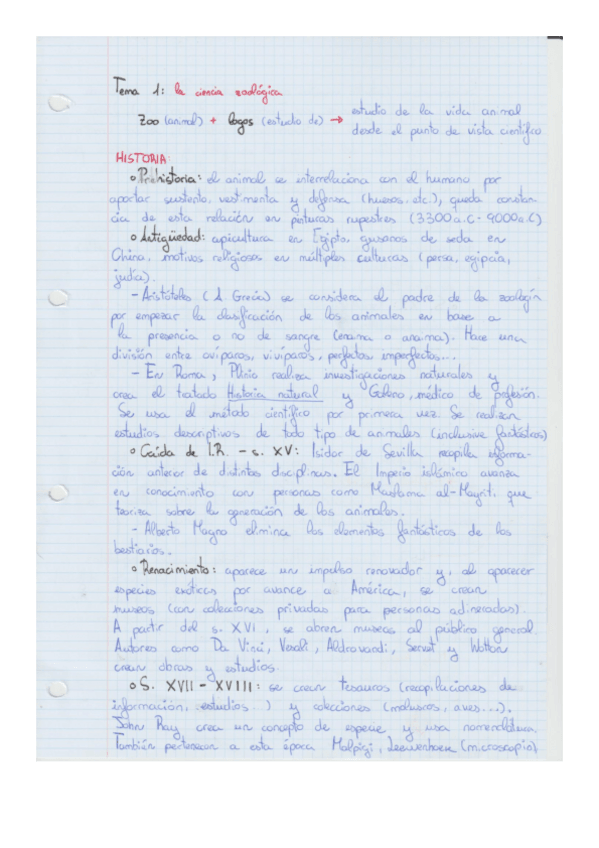 Tema 1: la ciencia zoológica
Zoo (animal) + logos (estudio de) → estudio de la vida animal
desde el punto de vista científico
HISTORIA:
o Prehistoria: el animal se interrelaciona con el humano por
aportar sustento, vestimenta y defensa (huesos, etc.), queda constan-
cia de esta relación en pinturas rupestres (3300 a.C - 9000 a.C)
o Antigüedad: apicultura en Egipto, gusanos de seda en
China, motivos religiosos en múltiples culturas (persa, egipcia,
judía).
- Aristóteles (A. Grecia) se considera el padre de la zoología
por empezar la clasificación de los animales en base a
la presencia o no de sangre (enaima o anaima). Hace una
división entre ovíparos, vivíparos, perfectos imperfectos...
- En Roma, Plinio realiza investigaciones naturales y
crea el tratado Historia natural y Galeno, médico de profesión.
Se usa el método científico por primera vez. Se realizan
estudios descriptivos de todo tipo de animales (inclusive fantásticos)
o Caída de I.R. - s. XV: Isidor de Sevilla recopila informa-
ción anterior de distintas disciplinas. El Imperio islámico avanza
en conocimiento con personas como Maslama al-Mayriti, que
teoriza sobre la generación de los animales.
- Alberto Magno elimina los elementos fantásticos de los
bestiarios.
o Renacimiento: aparece un impulso renovador y, al aparecer
especies exóticas por avance a América, se crean
museos (con colecciones privadas para personas adineradas).
A partir del s. XVI, se abren museos al público general.
Autores como Da Vinci, Vesalio, Aldrovandi, Servet y Wotton
crean obras y estudios.
o S. XVII - XVIII: se crean Tesauros (recopilaciones de
información, estudios...) y colecciones (moluscos, aves...).
John Ray crea un concepto de especie y usa nomenclatura.
También pertenecen a esta época Malpigi, Leeuwenhoek (microscopio)